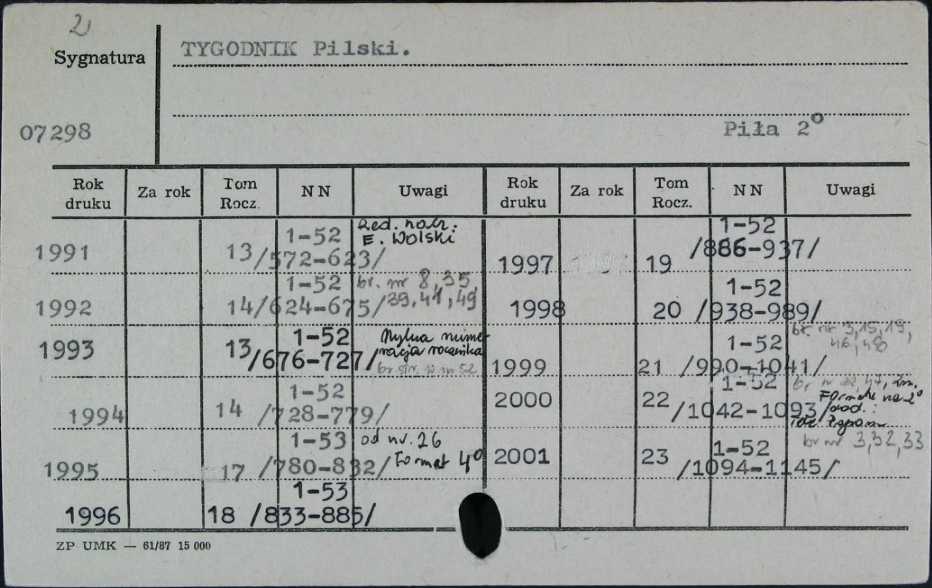 2
Sygnatura
TYGODNIK Pilski.
07298
Piła 2°
Rok druku Za rok Tom Rocz. NN Uwagi Rok druku Za rok Tom Rocz. NN Uwagi
1991 13 1-52 /572-623/ Red. nacz. E. Wolski
1992 14 1-52 /624-675/ br. nr 8, 35, 39, 41, 49
1993 13 1-52 /676-727/ Mylna numeracja rocznika
1994 14 1-52 /728-779/
1995 17 1-53 /780-832/ od nr. 26 Format 4°
1996 18 1-53 /833-885/
1997 19 1-52 /886-937/
1998 20 1-52 /938-989/
1999 21 1-52 /990-1041/ br. nr 3, 15, 19, 46, 48
2000 22 1-52 /1042-1093/ br nr
2001 23 1-52 /1094-1145/ br nr 3, 32, 33
ZP UMK — 61/87 15 000